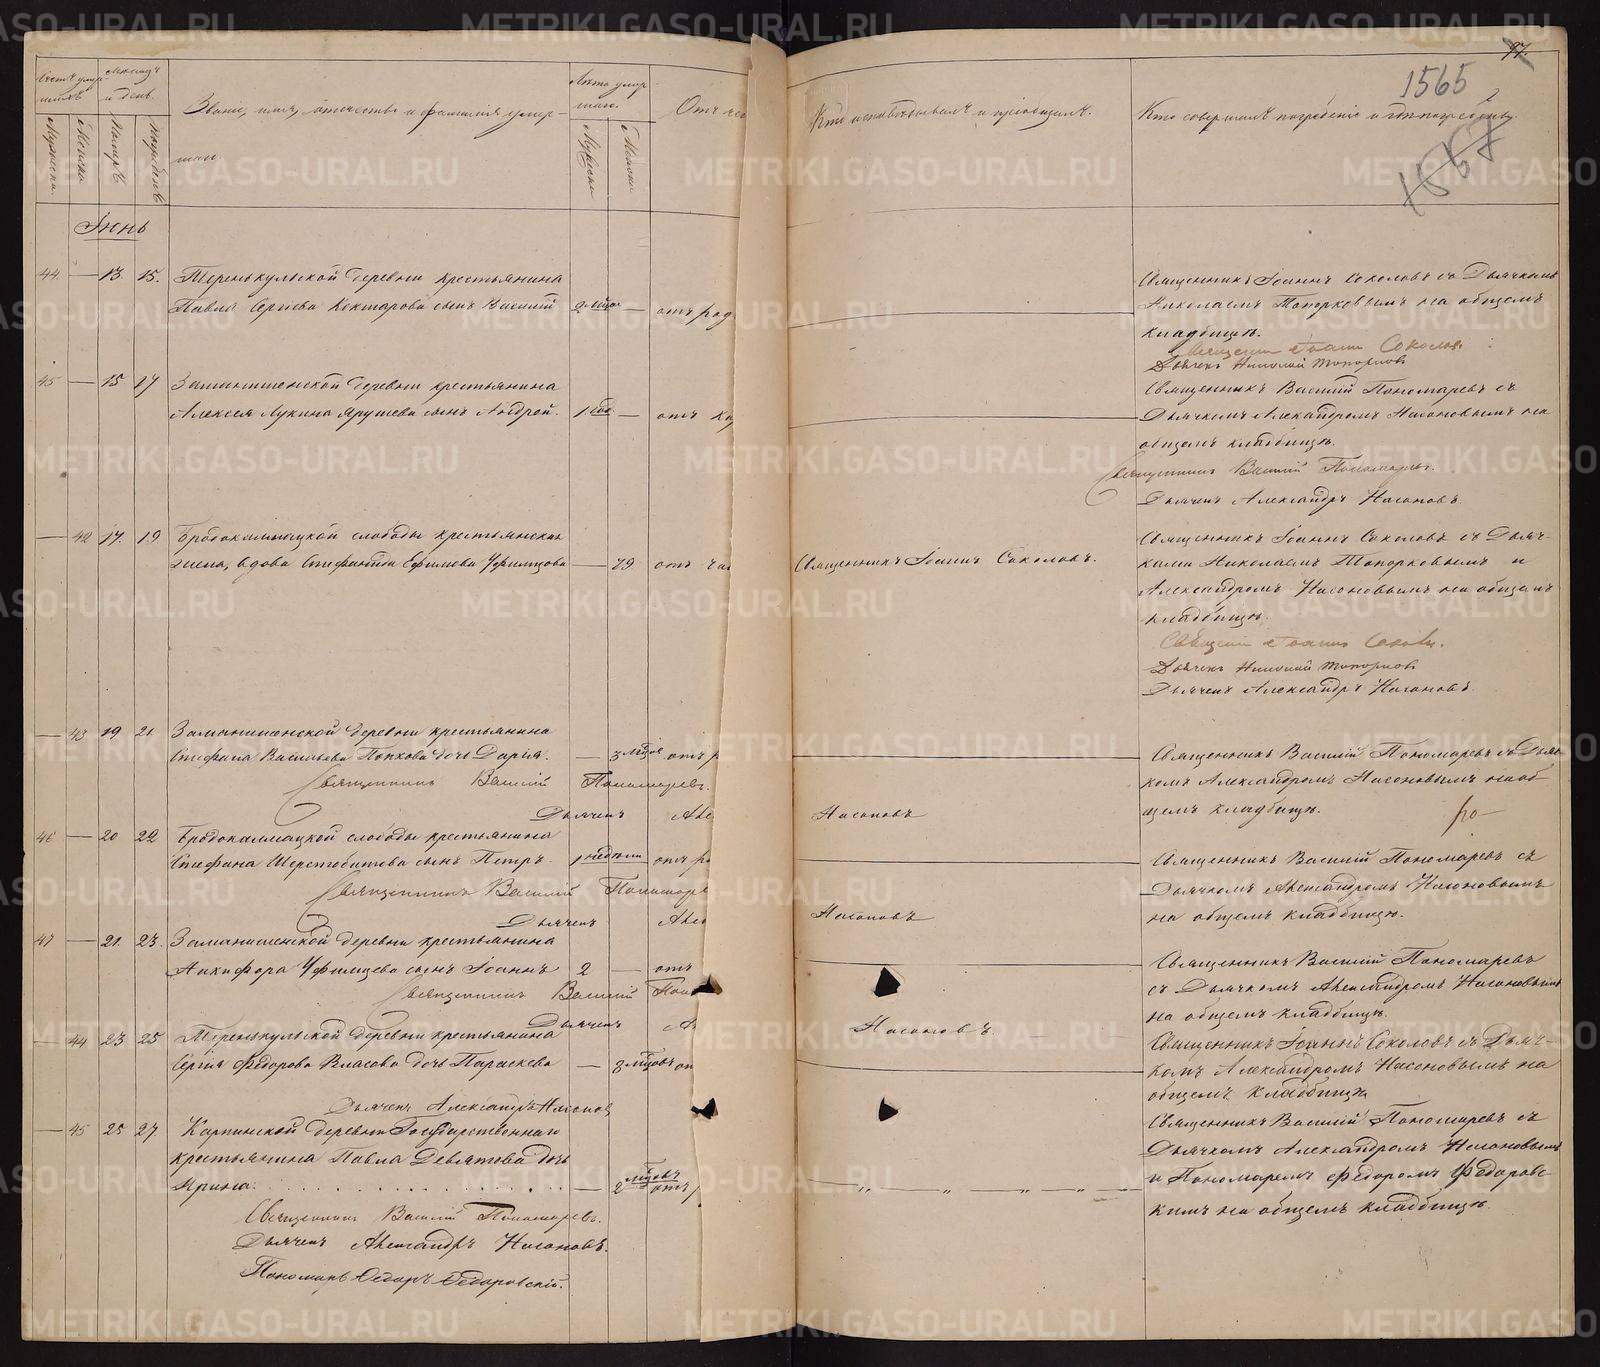 97.
1565
1567
Счетъ умер-
шихъ
Мѣсяцъ
и день.
Званіе, имя, отчество и фамилія умер-
шаго.
Лѣта умер-
шаго.
Отъ чего
Кто исповѣдывалъ и пріобщалъ.
Кто совершалъ погребеніе и гдѣ погребены.
Мужска
Женска
Смерти
Погребенія
Мужска
Женска
Іюнь
44 — 13. 15. Теренькульской деревни крестьянина
Павла Сергѣева Кокшарова сынъ Василій 2 мѣся — отъ род
Священникъ Іоаннъ Соколовъ съ Дьячкомъ
Николаемъ Топорковымъ на общемъ
кладбищѣ.
Священник Іоанн Соколов.
Дьячекъ Николай Топорковъ
45 — 15 17 Заманиленской деревни крестьянина
Алексея Лукина Ярушева сынъ Андрей. 1 год — отъ ко
Священникъ Василій Пономаревъ съ
Дьячкомъ Александромъ Насоновымъ на
общемъ кладбищѣ.
Священникъ Василій Пономаревъ.
Дьячекъ Александръ Насоновъ.
— 42 17. 19. Бродокалмацкой слободы крестьянская
жена, вдова Стефанида Ефимова Уфимцова — 79 отъ
Священникъ Іоаннъ Соколовъ.
Священникъ Іоаннъ Соколовъ съ Дьяч-
ками Николаемъ Топорковымъ и
Александромъ Насоновымъ на общемъ
кладбищѣ.
Священ Іоаннъ Соколов.
Дьячекъ Николай Топорковъ
Дьячекъ Александръ Насоновъ.
— 43 19. 21. Заманиленской деревни крестьянина
Стефана Васильева Попкова дочь Дарія. — 3 мѣсяц отъ р
Священникъ Василій Пономаревъ съ Дьяч-
комъ Александромъ Насоновымъ на об
щемъ кладбищѣ.
Священникъ Василій Пономаревъ.
Дьячекъ Але
Насоновъ
46 — 20 22 Бродокалмацкой слободы крестьянина
Стефана Шерстобитова сынъ Петръ. 1 недели отъ ро
Священникъ Василій Пономаревъ съ
Дьячкомъ Александромъ Насоновымъ
на общемъ кладбищѣ.
Священникъ Василій Пономаре
Дьячекъ Алек
Насоновъ
47 — 21. 23. Заманиленской деревни крестьянина
Никифора Уфимцева сынъ Іоаннъ 2 — отъ
Священникъ Василій Пономаревъ
съ Дьячкомъ Александромъ Насоновымъ
на общемъ кладбищѣ.
Священникъ Василій Поно
Дьячекъ А
Насоновъ.
— 44 23 25 Теренькульской деревни крестьянина
Сергія Федорова Власова дочь Параскева — 8 мѣсяцовъ от
Священникъ Іоаннъ Соколовъ съ Дьяч-
комъ Александромъ Насоновымъ на
общемъ кладбищѣ
Дьячекъ Александръ Насонов
— 45 25 27. Карпинской деревни Государственнаго
крестьянина Павла Девятова дочь
Ирина. — 2 мѣсяцъ отъ
Священникъ Василій Пономаревъ съ
Дьячкомъ Александромъ Насоновымъ
и Пономаремъ Федоромъ Федоровс-
кимъ на общемъ кладбищѣ.
Священникъ Василій Пономаревъ.
Дьячекъ Александръ Насоновъ.
Пономарь Ѳедоръ Ѳедоровскій.
METRIKI.GASO-URAL.RU